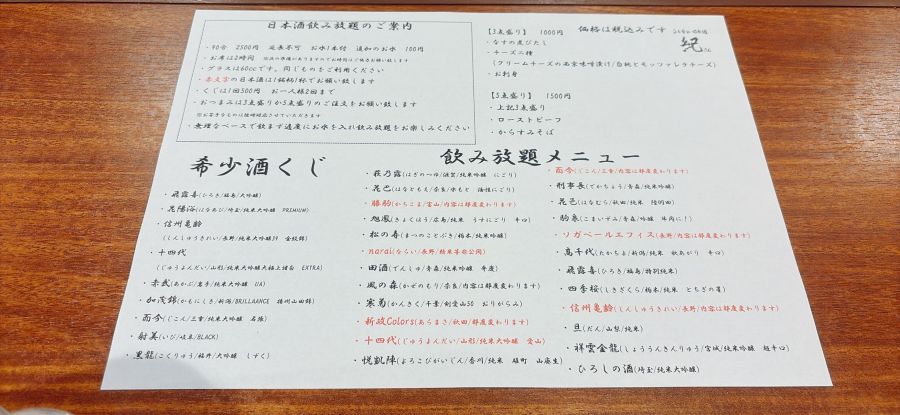 日本酒飲み放題のご案内
・90分 2500円 延長不可 お水1本付 追加のお水 100円
・お席は2時間
・グラスは60ccです。同じものをご利用ください
・赤文字の日本酒は1銘柄1杯でお願い致します
・くじは1回500円 お一人様2回まで
・おつまみは3点盛りか5点盛りのご注文をお願い致します
・無理なペースで飲まず適度にお水を入れ飲み放題をお楽しみください
【3点盛り】 1000円
・なすの煮びたし
・チーズ二種
(クリームチーズの西京味噌漬け/白桃とモッツァレラチーズ)
・お刺身
【5点盛り】 1500円
・上記3点盛り
・ローストビーフ
・からすみそば
価格は税込みです
希少酒くじ
・飛露喜(ひろき/福島/大吟醸)
・花陽浴(はなあび/埼玉/純米大吟醸 PREMIUM)
・信州亀齢
(しんしゅうきれい/長野/純米大吟醸39 金紋錦)
・十四代
(じゅうよんだい/山形/純米大吟醸大極上諸白 EXTRA)
・赤武(あかぶ/岩手/純米大吟醸 UA)
・加茂錦(かもにしき/新潟/BRILLAANCE 播州山田錦)
・而今(じこん/三重/純米大吟醸 名張)
・射美(いび/岐阜/BLACK)
・黒龍(こくりゅう/福井/大吟醸 しずく)
飲み放題メニュー
・萩乃露(はぎのつゆ/滋賀/純米吟醸 にごり)
・花巴(はなともえ/奈良/水もと 活性にごり)
・勝駒(かちこま/富山/内容は都度変わります)
・旭鳳(きょくほう/広島/純米 うすにごり 辛口)
・松の寿(まつのことぶき/栃木/純米吟醸)
・narai(ならい/長野/精米等非公開)
・田酒(でんしゅ/青森/純米吟醸
・風の森(かぜのもり/奈良/内容は都度変わります)
・寒菊(かんきく/千葉/剣愛山50 おりがらみ)
・新政Colors(あらまさ/秋田/都度変わります)
・十四代(じゅうよんだい/山形/純米大吟醸 愛山)
・悦凱陣(よろこびがいじん/香川/純米 雄町 山廃生)
・而今(じこん/三重/内容は都度変わります)
・刑事長(でかちょう/青森/純米吟醸)
・花邑(はなむら/秋田/純米 陸羽田)
・駒泉(こまいずみ/青森/吟醸 牛肉に!)
・ソガペールエフィス(長野/内容は都度変わります)
・高千代(たかちよ/新潟/純米 秋あがり 辛口)
・飛露喜(ひろき/福島/特別純米)
・四季桜(しきざくら/栃木/純米 とちぎの星)
・信州亀齢(しんしゅうきれい/長野/内容は都度変わります)
・旦(だん/山梨/純米)
・祥雲金龍(しょううんきんりゅう/宮城/純米吟醸 超辛口)
・ひろしの酒(埼玉/純米大吟醸)